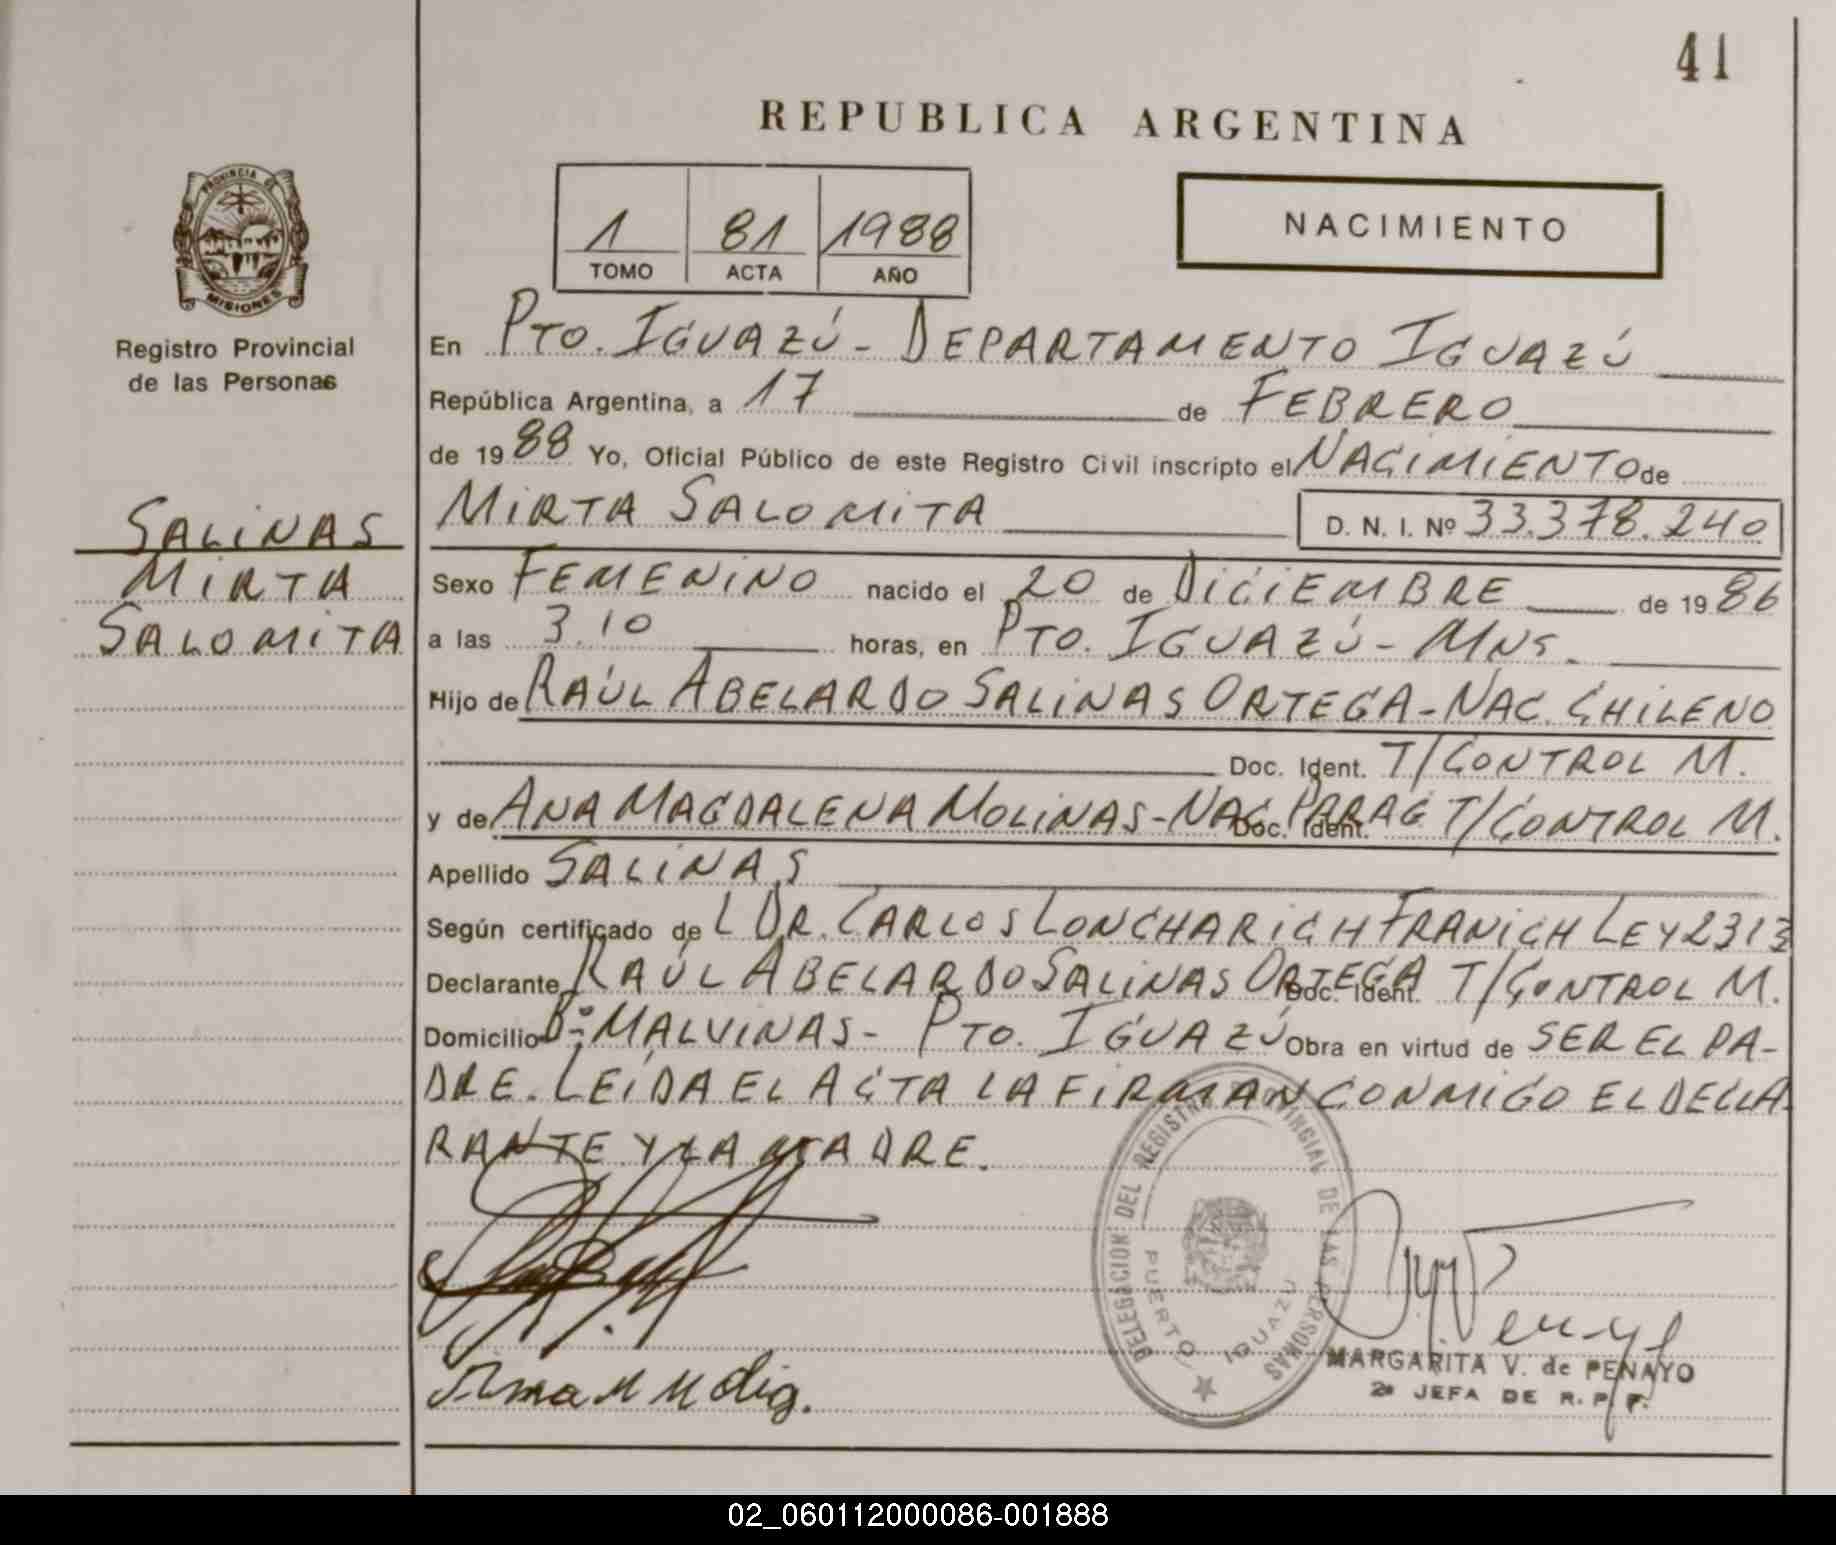 41
REPUBLICA ARGENTINA
PROVINCIA DE
MISIONES
Registro Provincial
de las Personas
1 81 1988
TOMO ACTA AÑO
NACIMIENTO
En PTO. IGUAZÚ - DEPARTAMENTO IGUAZÚ
República Argentina, a 17 de FEBRERO
de 1988 Yo, Oficial Público de este Registro Civil inscripto el NACIMIENTO de
MIRTA SALOMITA D. N. I. Nº 33.378.240
SALINAS
MIRTA
SALOMITA
Sexo FEMENINO nacido el 20 de DICIEMBRE de 1986
a las 3.10 horas, en PTO. IGUAZÚ - MNS.
Hijo de RAÚL ABELARDO SALINAS ORTEGA - NAC. CHILENO
Doc. Ident. T/CONTROL M.
y de ANA MAGDALENA MOLINAS - NAC PARAG Doc. Ident. T/CONTROL M.
Apellido SALINAS
Según certificado de L DR. CARLOS LONCHARICH FRANICH LEY 2313
Declarante RAÚL ABELARDO SALINAS ORTEGA Doc. Ident. T/CONTROL M.
Domicilio Bº MALVINAS - PTO. IGUAZÚ Obra en virtud de SER EL PA-
DRE. LEÍDA EL ACTA LA FIRMAN CONMIGO EL DECLA
RANTE Y LA MADRE.
DELEGACION DEL REGISTRO PROVINCIAL DE LAS PERSONAS
PUERTO IGUAZU
MARGARITA V. de PENAYO
2ª JEFA DE R. P. P.
02_060112000086-001888